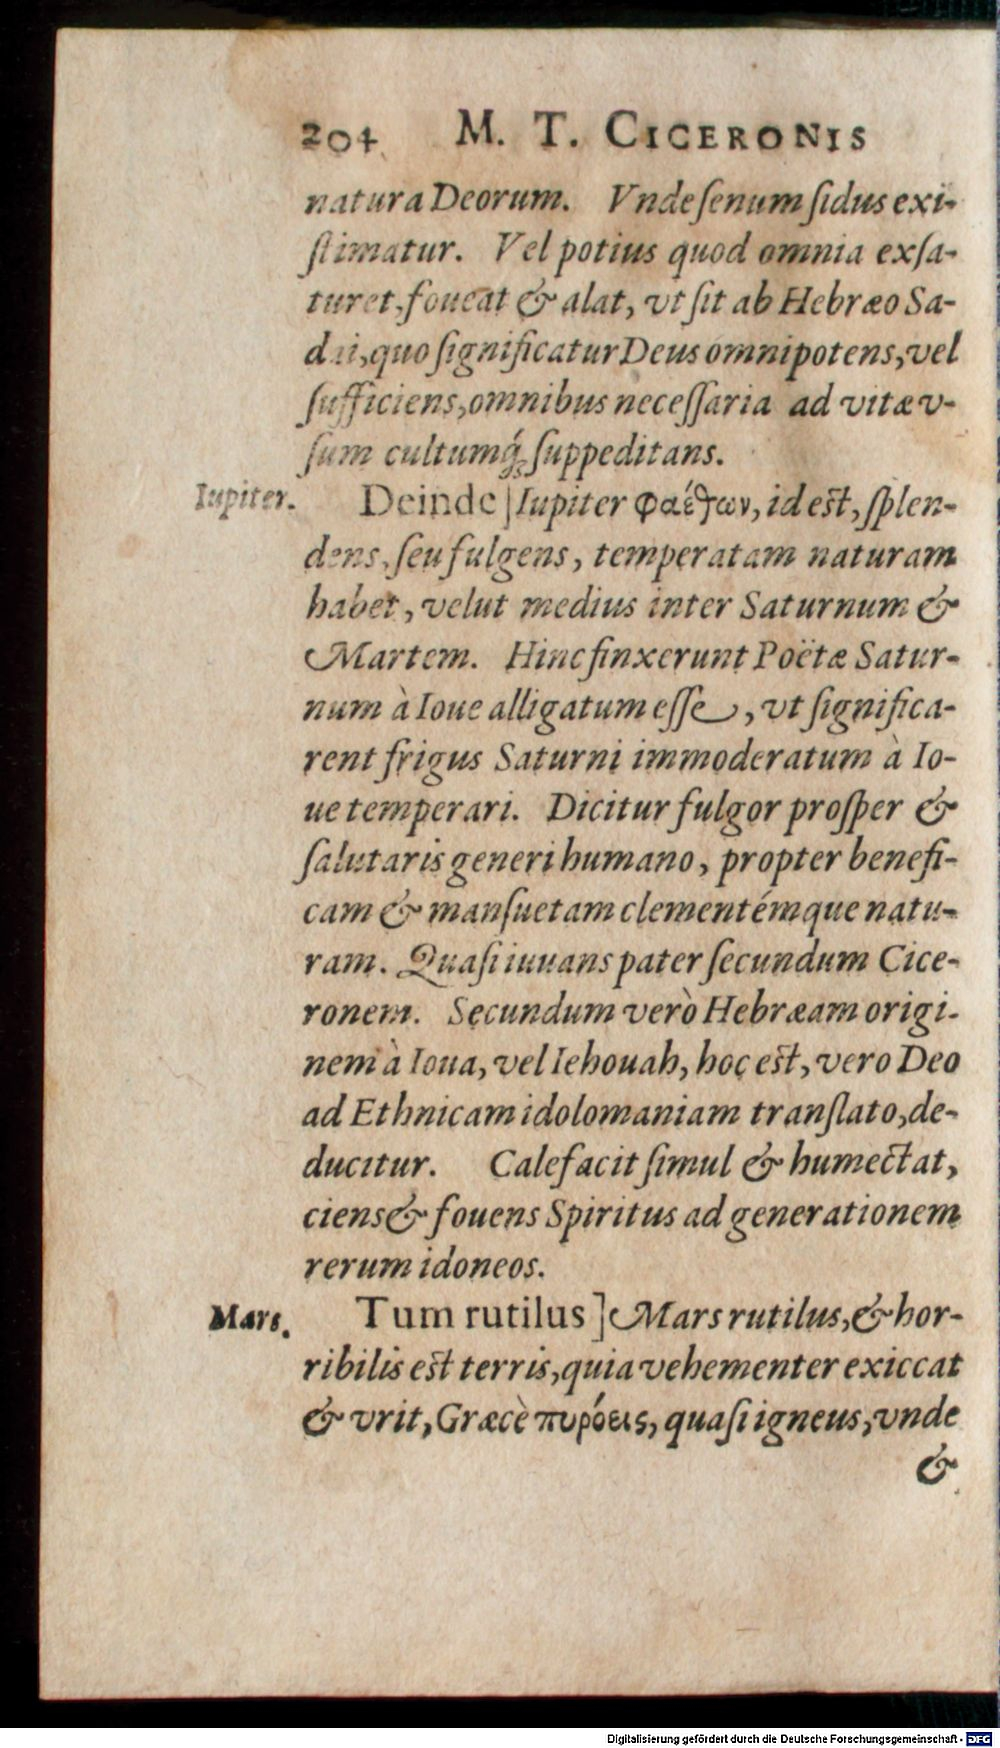 204 M. T. CICERONIS
natura Deorum. Vnde ſenum ſidus exi-
ſtimatur. Vel potius quod omnia exſa-
turet, foueat & alat, vt ſit ab Hebræo Sa-
dai, quo ſignificatur Deus omnipotens, vel
ſufficiens, omnibus neceſſaria ad vitæ v-
ſum cultumq́; ſuppeditans.
Iupiter. Deinde] Iupiter φαέθων, id est, ſplen-
dens, ſeu fulgens, temperatam naturam
habet, velut medius inter Saturnum &
Martem. Hinc finxerunt Poëtæ Satur-
num à Ioue alligatum eſſe, vt ſignifica-
rent frigus Saturni immoderatum à Io-
ue temperari. Dicitur fulgor proſper &
ſalutaris generi humano, propter benefi-
cam & manſuetam clementémque natu-
ram. Quaſi iuuans pater ſecundum Cice-
ronem. Secundum verò Hebræam origi-
nem à Ioua, vel Iehouah, hoc est, vero Deo
ad Ethnicam idolomaniam tranſlato, de-
ducitur. Calefacit ſimul & humectat,
ciens & fouens Spiritus ad generationem
rerum idoneos.
Mars. Tum rutilus] Mars rutilus, & hor-
ribilis est terris, quia vehementer exiccat
& vrit, Græcè πυρόεις, quaſi igneus, vnde
&
Digitalisierung gefördert durch die Deutsche Forschungsgemeinschaft - DFG